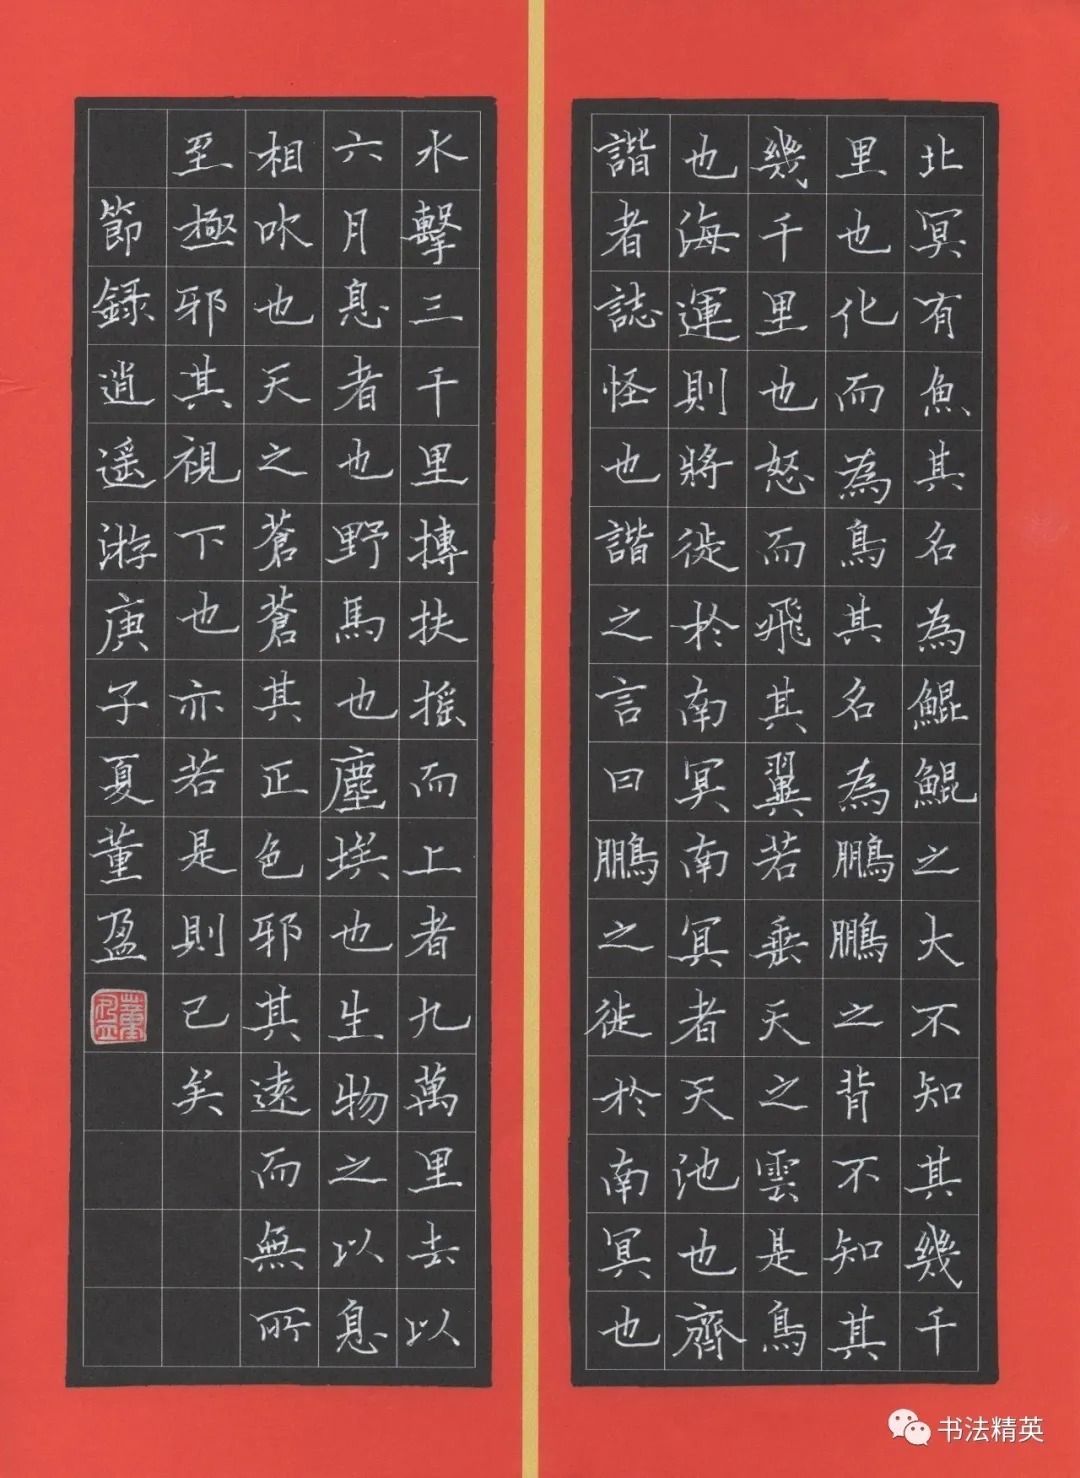 北冥有魚其名為鯤鯤之大不知其幾千
里也化而為鳥其名為鵬鵬之背不知其
幾千里也怒而飛其翼若垂天之雲是鳥
也海運則將徙於南冥南冥者天池也齊
諧者誌怪也諧之言曰鵬之徙於南冥也
水擊三千里摶扶搖而上者九萬里去以
六月息者也野馬也塵埃也生物之以息
相吹也天之蒼蒼其正色邪其遠而無所
至極邪其視下也亦若是則已矣
節録逍遥游庚子夏董盈
董盈
书法精英